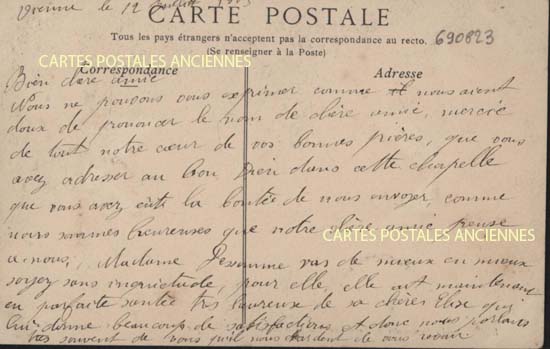 Vienne le 12 Juillet
CARTE POSTALE
Tous les pays étrangers n'acceptent pas la correspondance au recto.
(Se renseigner à la Poste)
690823
CARTES POSTALES ANCIENNES
Correspondance
Adresse
Bien chère amie
Nous ne pouvons vous exprimer comme il nous avent
doux de prononcer le nom de chère amie, mercie
de tout notre cœur de vos bonnes prières, que vous
avez adresser au bon Dieu dans cette chapelle
que vous avez eute la bontée de nous envoyer, comme
nous sommes heureuses que notre chère amie pense
CARTES POSTALES ANCIENNES
a nous, Madame vas de mieux en mieux
soyez sans inquietude, pour elle, elle est maintenant
en parfaite santée très heureux de sa chères Elise qui
lui donne beaucoup de satisfactions et donc nous parlons
très souvent de vous qu'il nous tardent de vous revoir